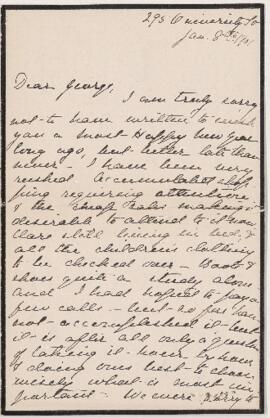 293 University St
Jan. 8th 1901
Dear George,
I am truly sorry
not to have written to wish
you a most Happy New Year
long ago, but better late than
never - I have been very
rushed accumulated shop-
ping requiring attention
& the cheap sales making it
desirable to attend to it now
Clare still being in bed, &
all the children's clothing
to be checked over - Boots &
shoes quite a study alone
and I had hoped to pay a
few calls - but so far have
not accomplished it - but
it is after all only a question
of taking it hour by hour
& doing ones best to choose
wisely what is most im-
portant - We were sorry to